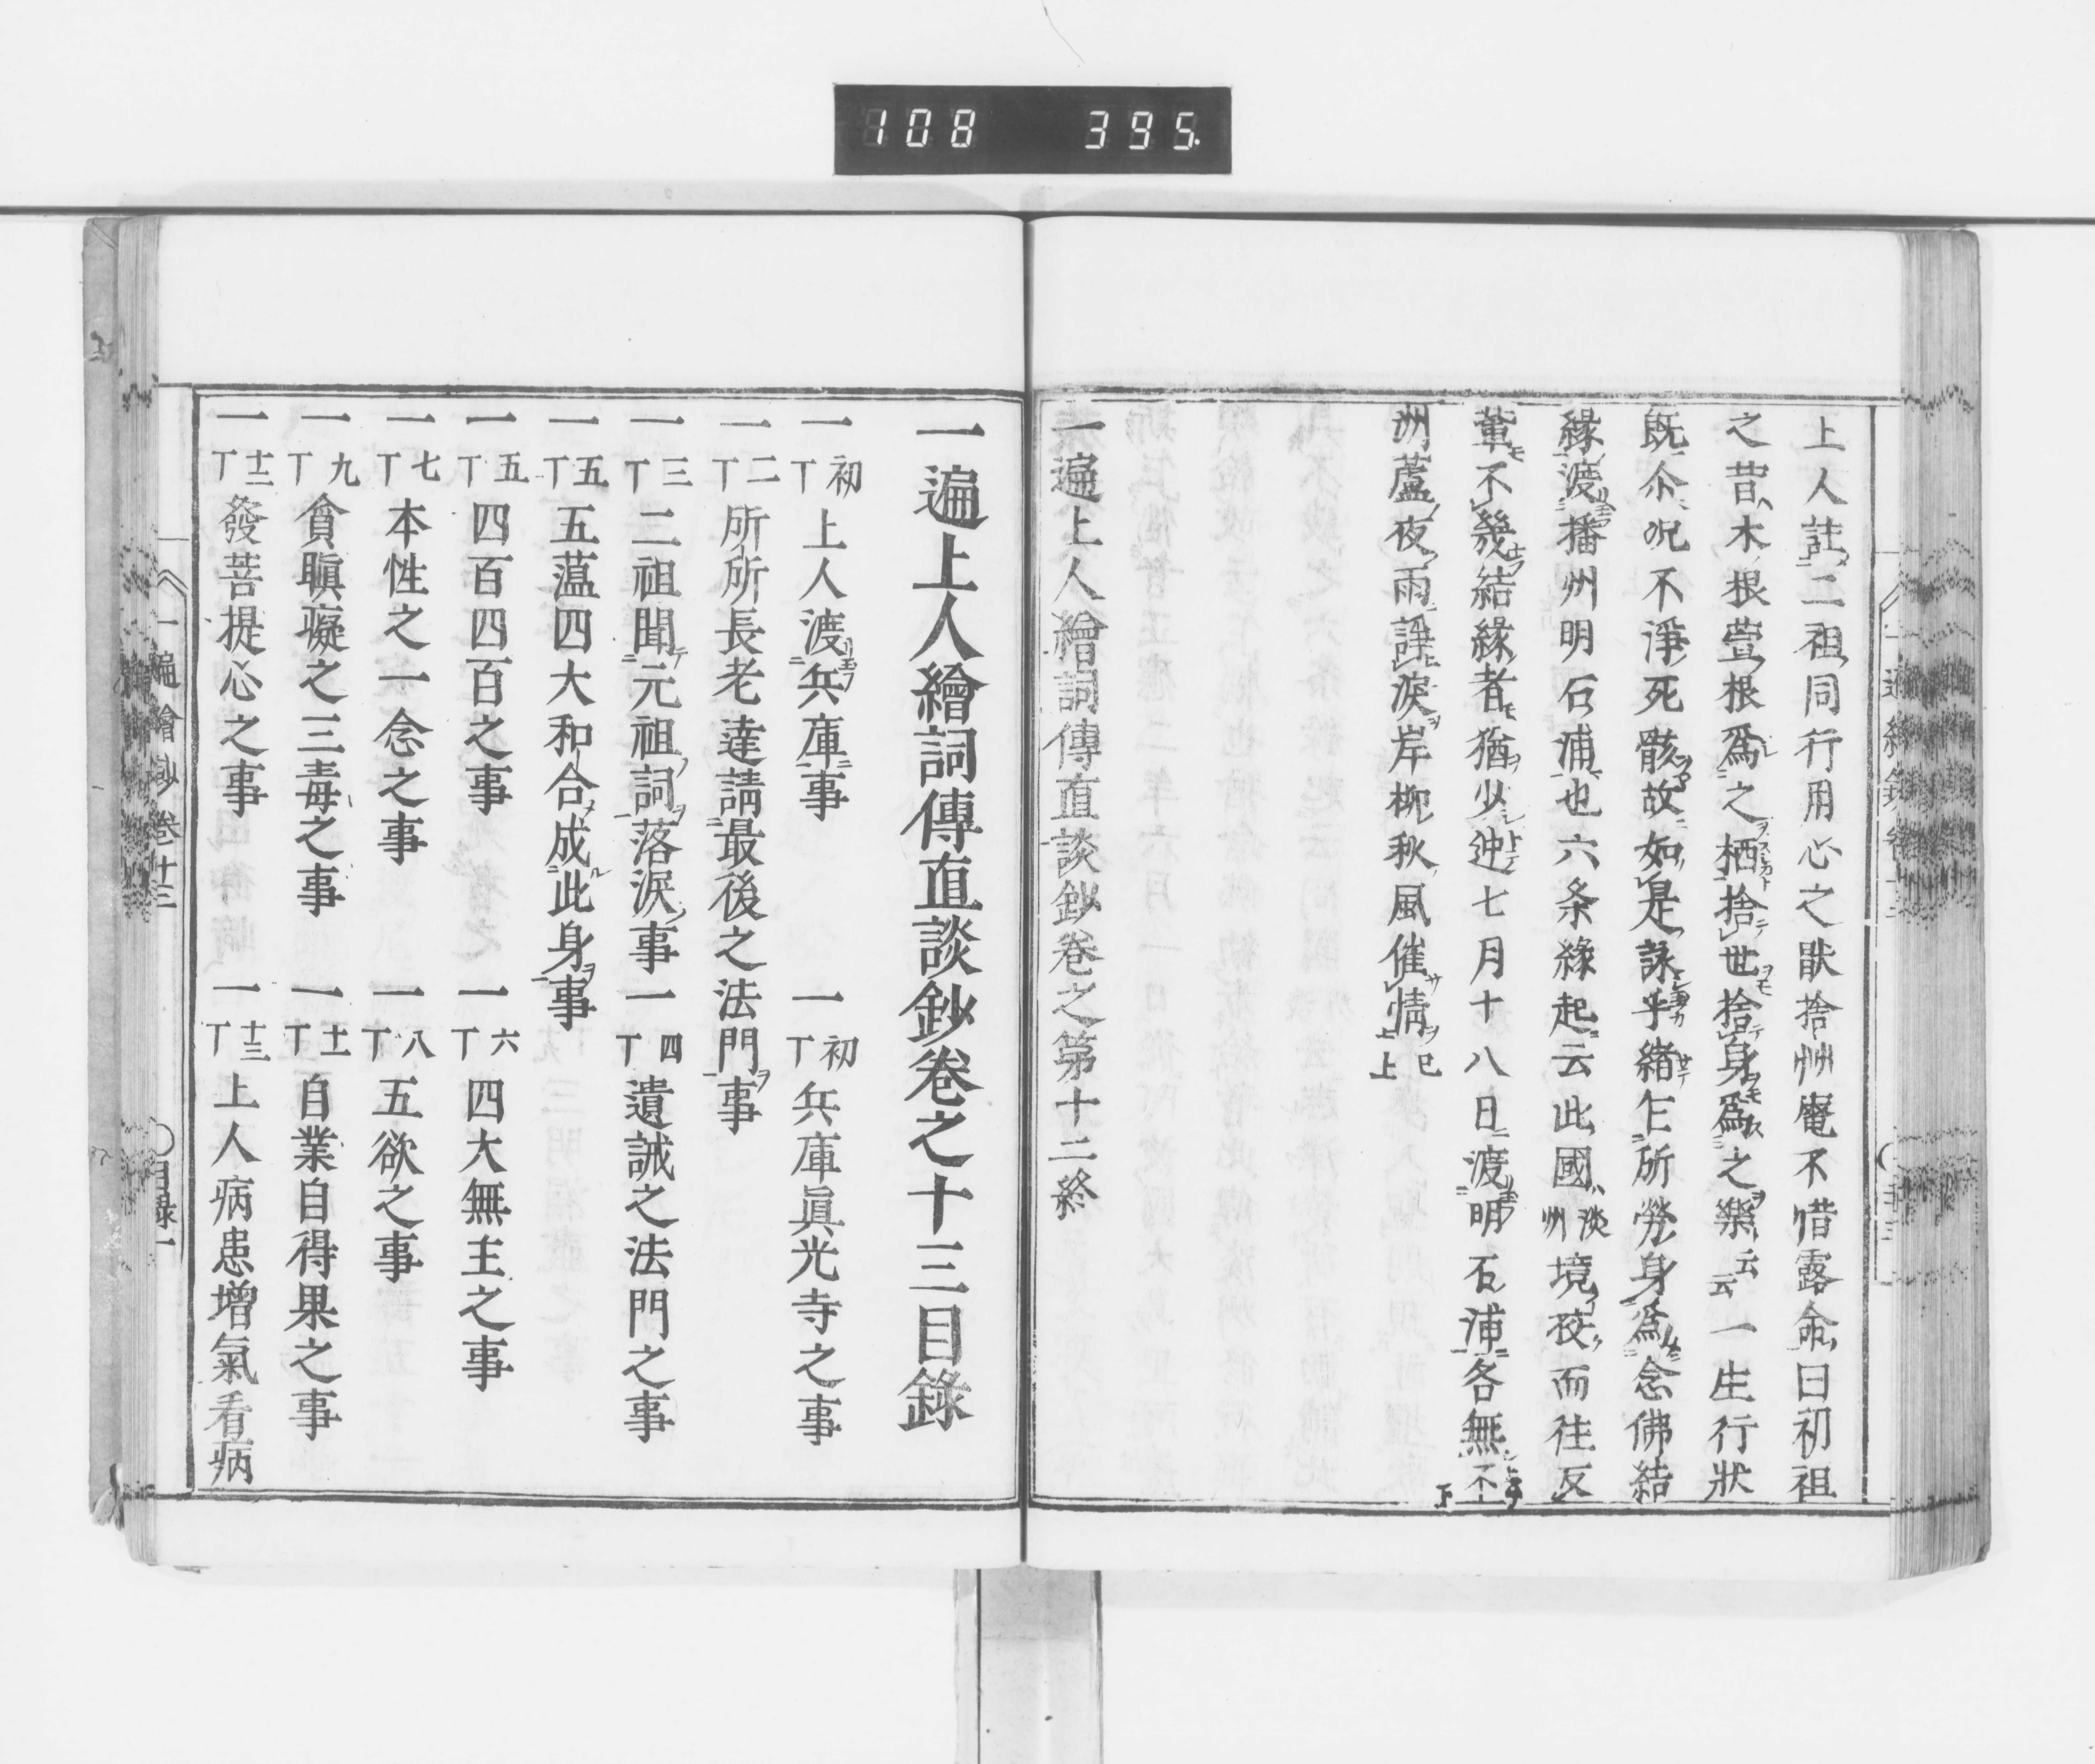 108 395.
上人註二祖同行用心之猒捨艸庵不惜露命曰初祖
之昔木根萱根爲之栖捨世捨身爲之樂云云一生行狀
既尒況不淨死骸故如是詠乎緒乍所勞身爲念佛結
緣渡播州明石浦也六条緣起云此國淡州境夜而往反
輩不幾結緣者猶少迚七月十八日渡明石浦各無不
洲蘆夜雨諍淚岸柳秋風催情已上
一遍上人繪詞傳直談鈔卷之第十二終
一遍上人繪詞傳直談鈔卷之十三目錄
一初丁上人渡兵庫事 一初丁兵庫眞光寺之事
一二丁所所長老達請最後之法門事
一三丁二祖聞元祖詞落淚事 一四丁遺誡之法門之事
一五丁五薀四大和合成此身事
一五丁四百四百之事 一六丁四大無主之事
一七丁本性之一念之事 一八丁五欲之事
一九丁貪瞋癡之三毒之事 一十一丁自業自得果之事
一十二丁發菩提心之事 一十三丁上人病患增氣看病
一遍繪鈔卷十三 〇目錄一